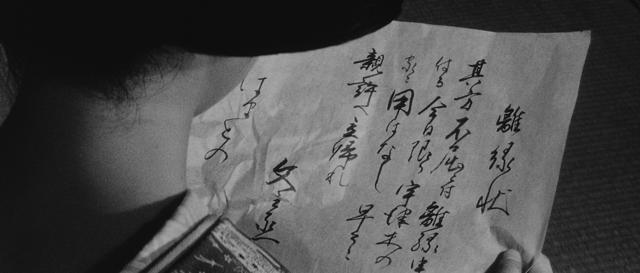 離縁状
其方不届に付離縁申
付る今日限り宇津木の
家に用はなし早々
親許へ立帰れ
文之丞
はまどの